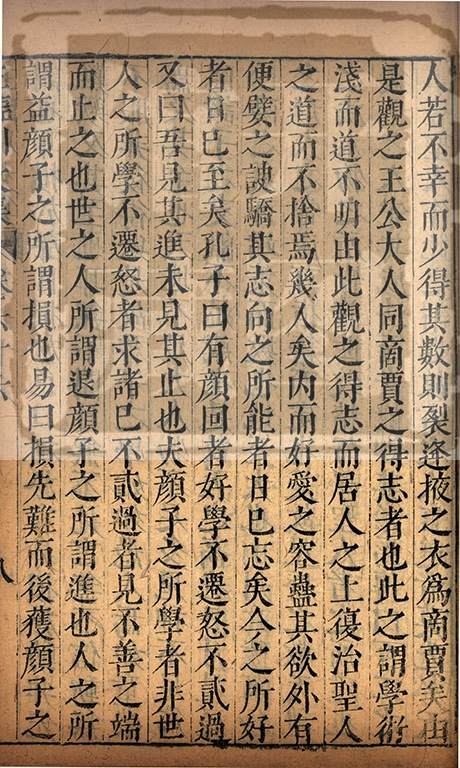 人若不幸而少得其數則裂逢掖之衣爲商賈矣由
是觀之王公大人同商賈之得志者也此之謂學術
淺而道不明由此觀之得志而居人之上復治聖人
之道而不捨焉幾人矣内而好愛之容蠱其欲外有
便嬖之諛驕其志向之所能者日已忘矣今之所好
者日已至矣孔子曰有顔回者好學不遷怒不貳過
又曰吾見其進未見其止也夫顔子之所學者非世
人之所學不遷怒者求諸已不貳過者見不善之端
而止之也世之人所謂退顔子之所謂進也人之所
謂益顔子之所謂損也易曰損先難而後獲顔子之